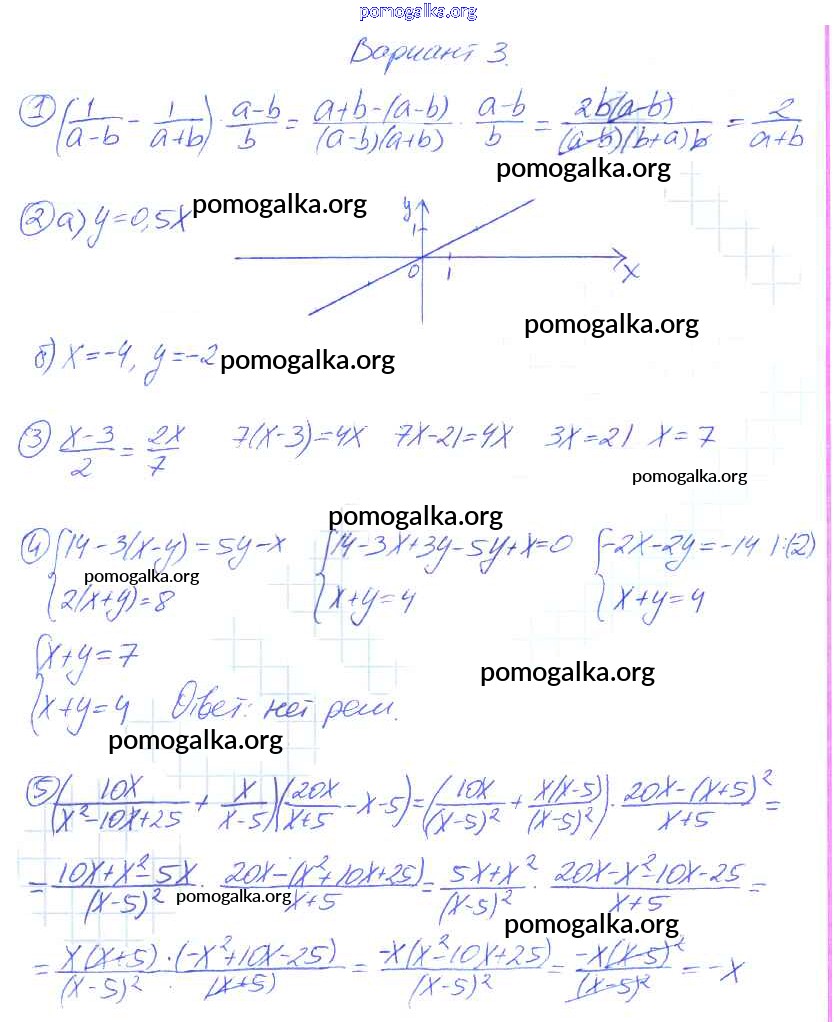 pomogalka.org
Вариант 3.
① (1/(a-b) - 1/(a+b)) · (a-b)/b = (a+b-(a-b))/((a-b)(a+b)) · (a-b)/b = 2b(a-b)/((a-b)(b+a)b) = 2/(a+b)
pomogalka.org
② а) y=0,5x pomogalka.org
y
1
0 1 x
pomogalka.org
б) x=-4, y=-2 pomogalka.org
③ (x-3)/2 = 2x/7 7(x-3)=4x 7x-21=4x 3x=21 x=7
pomogalka.org
pomogalka.org
④ {14-3(x-y)=5y-x {14-3x+3y-5y+x=0 {-2x-2y=-14 |:(2)
pomogalka.org
2(x+y)=8 x+y=4 x+y=4
{x+y=7
pomogalka.org
x+y=4 Ответ: нет реш.
pomogalka.org
⑤ (10x/(x²-10x+25) + x/(x-5))(20x/(x+5) -x-5)=(10x/(x-5)² + x(x-5)/(x-5)²) · (20x-(x+5)²)/(x+5) =
= (10x+x²-5x)/(x-5)² · (20x-(x²+10x+25))/(x+5) = (5x+x²)/(x-5)² · (20x-x²-10x-25)/(x+5) =
pomogalka.org
pomogalka.org
= x(x+5)·(-x²+10x-25)/((x-5)²·(x+5)) = -x(x²-10x+25)/(x-5)² = -x(x-5)²/(x-5)² = -x